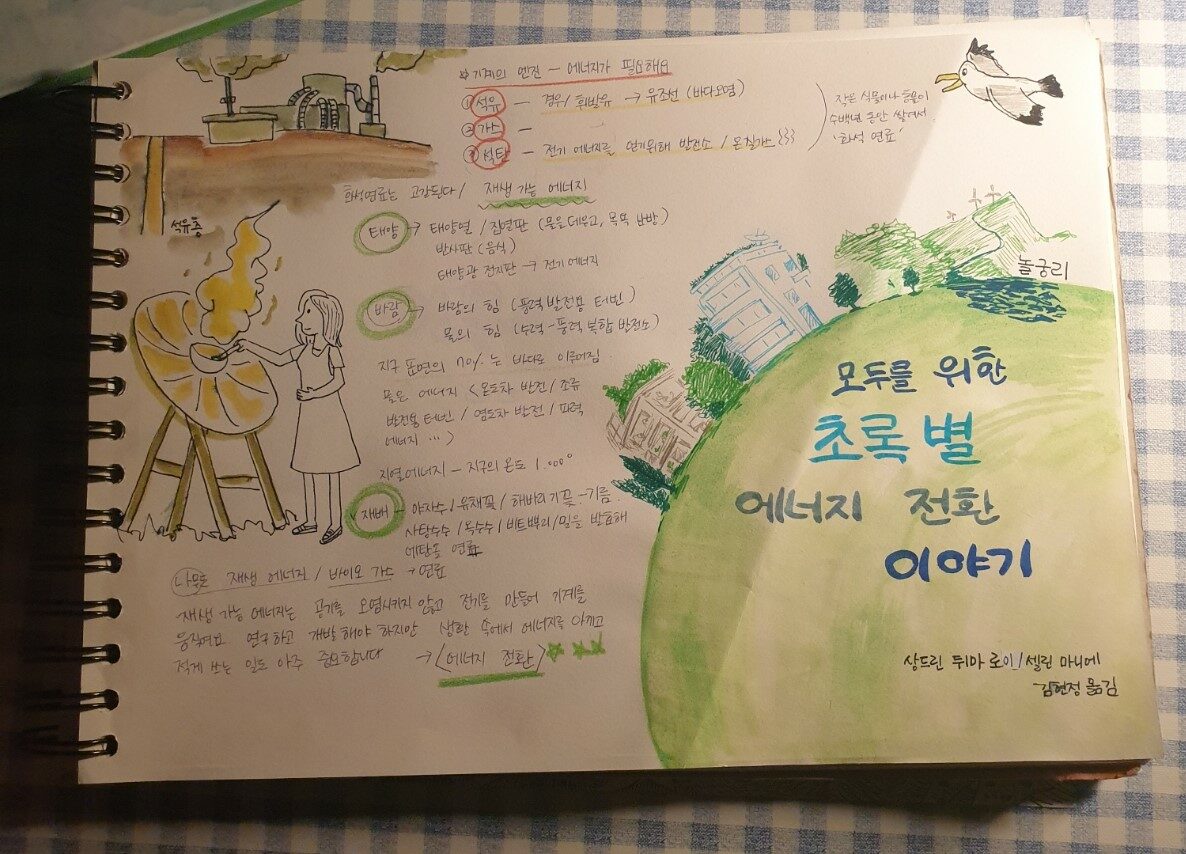 *기계의 엔진 - 에너지가 필요해요
① 석유 - 경유/휘발유 → 유조선 (바다오염)
② 가스 -
③ 석탄 - 전기 에너지를 얻기위해 발전소 / 온실가스
작은 식물이나 동물이
수백년 동안 쌓여서
'화석 연료'
석유층
화석연료는 고갈된다 / 재생 가능 에너지
태양 → 태양열 / 집열판 (물을 데우고, 목욕 난방)
반사판 (음식)
태양광 전지판 → 전기 에너지
바람 → 바람의 힘 (풍력 발전용 터빈)
물의 힘 (수력-풍력 복합 발전소)
지구 표면의 70%는 바다로 이루어짐.
물은 에너지 < 온도차 발전 / 조류
발전용 터빈 / 염도차 발전 / 파력
에너지 … >
지열에너지 - 지구의 온도 1.000°
재배 - 야자수 / 유채꽃 / 해바라기꽃 - 기름.
사탕수수 / 옥수수 / 비트뿌리 / 밀을 발효해
에탄올 연료
나무도 재생 에너지 / 바이오 가스 → 연료
재생 가능 에너지는 공기를 오염시키지 않고 전기를 만들어 기계를
움직여요. 연구하고 개발해야 하지만 생활 속에서 에너지를 아끼고
적게 쓰는 일도 아주 중요합니다 → [에너지 전환]
놀궁리
모두를 위한
초록 별
에너지 전환
이야기
상드린 뒤마 로이/셀린 마니에
김현정 옮김